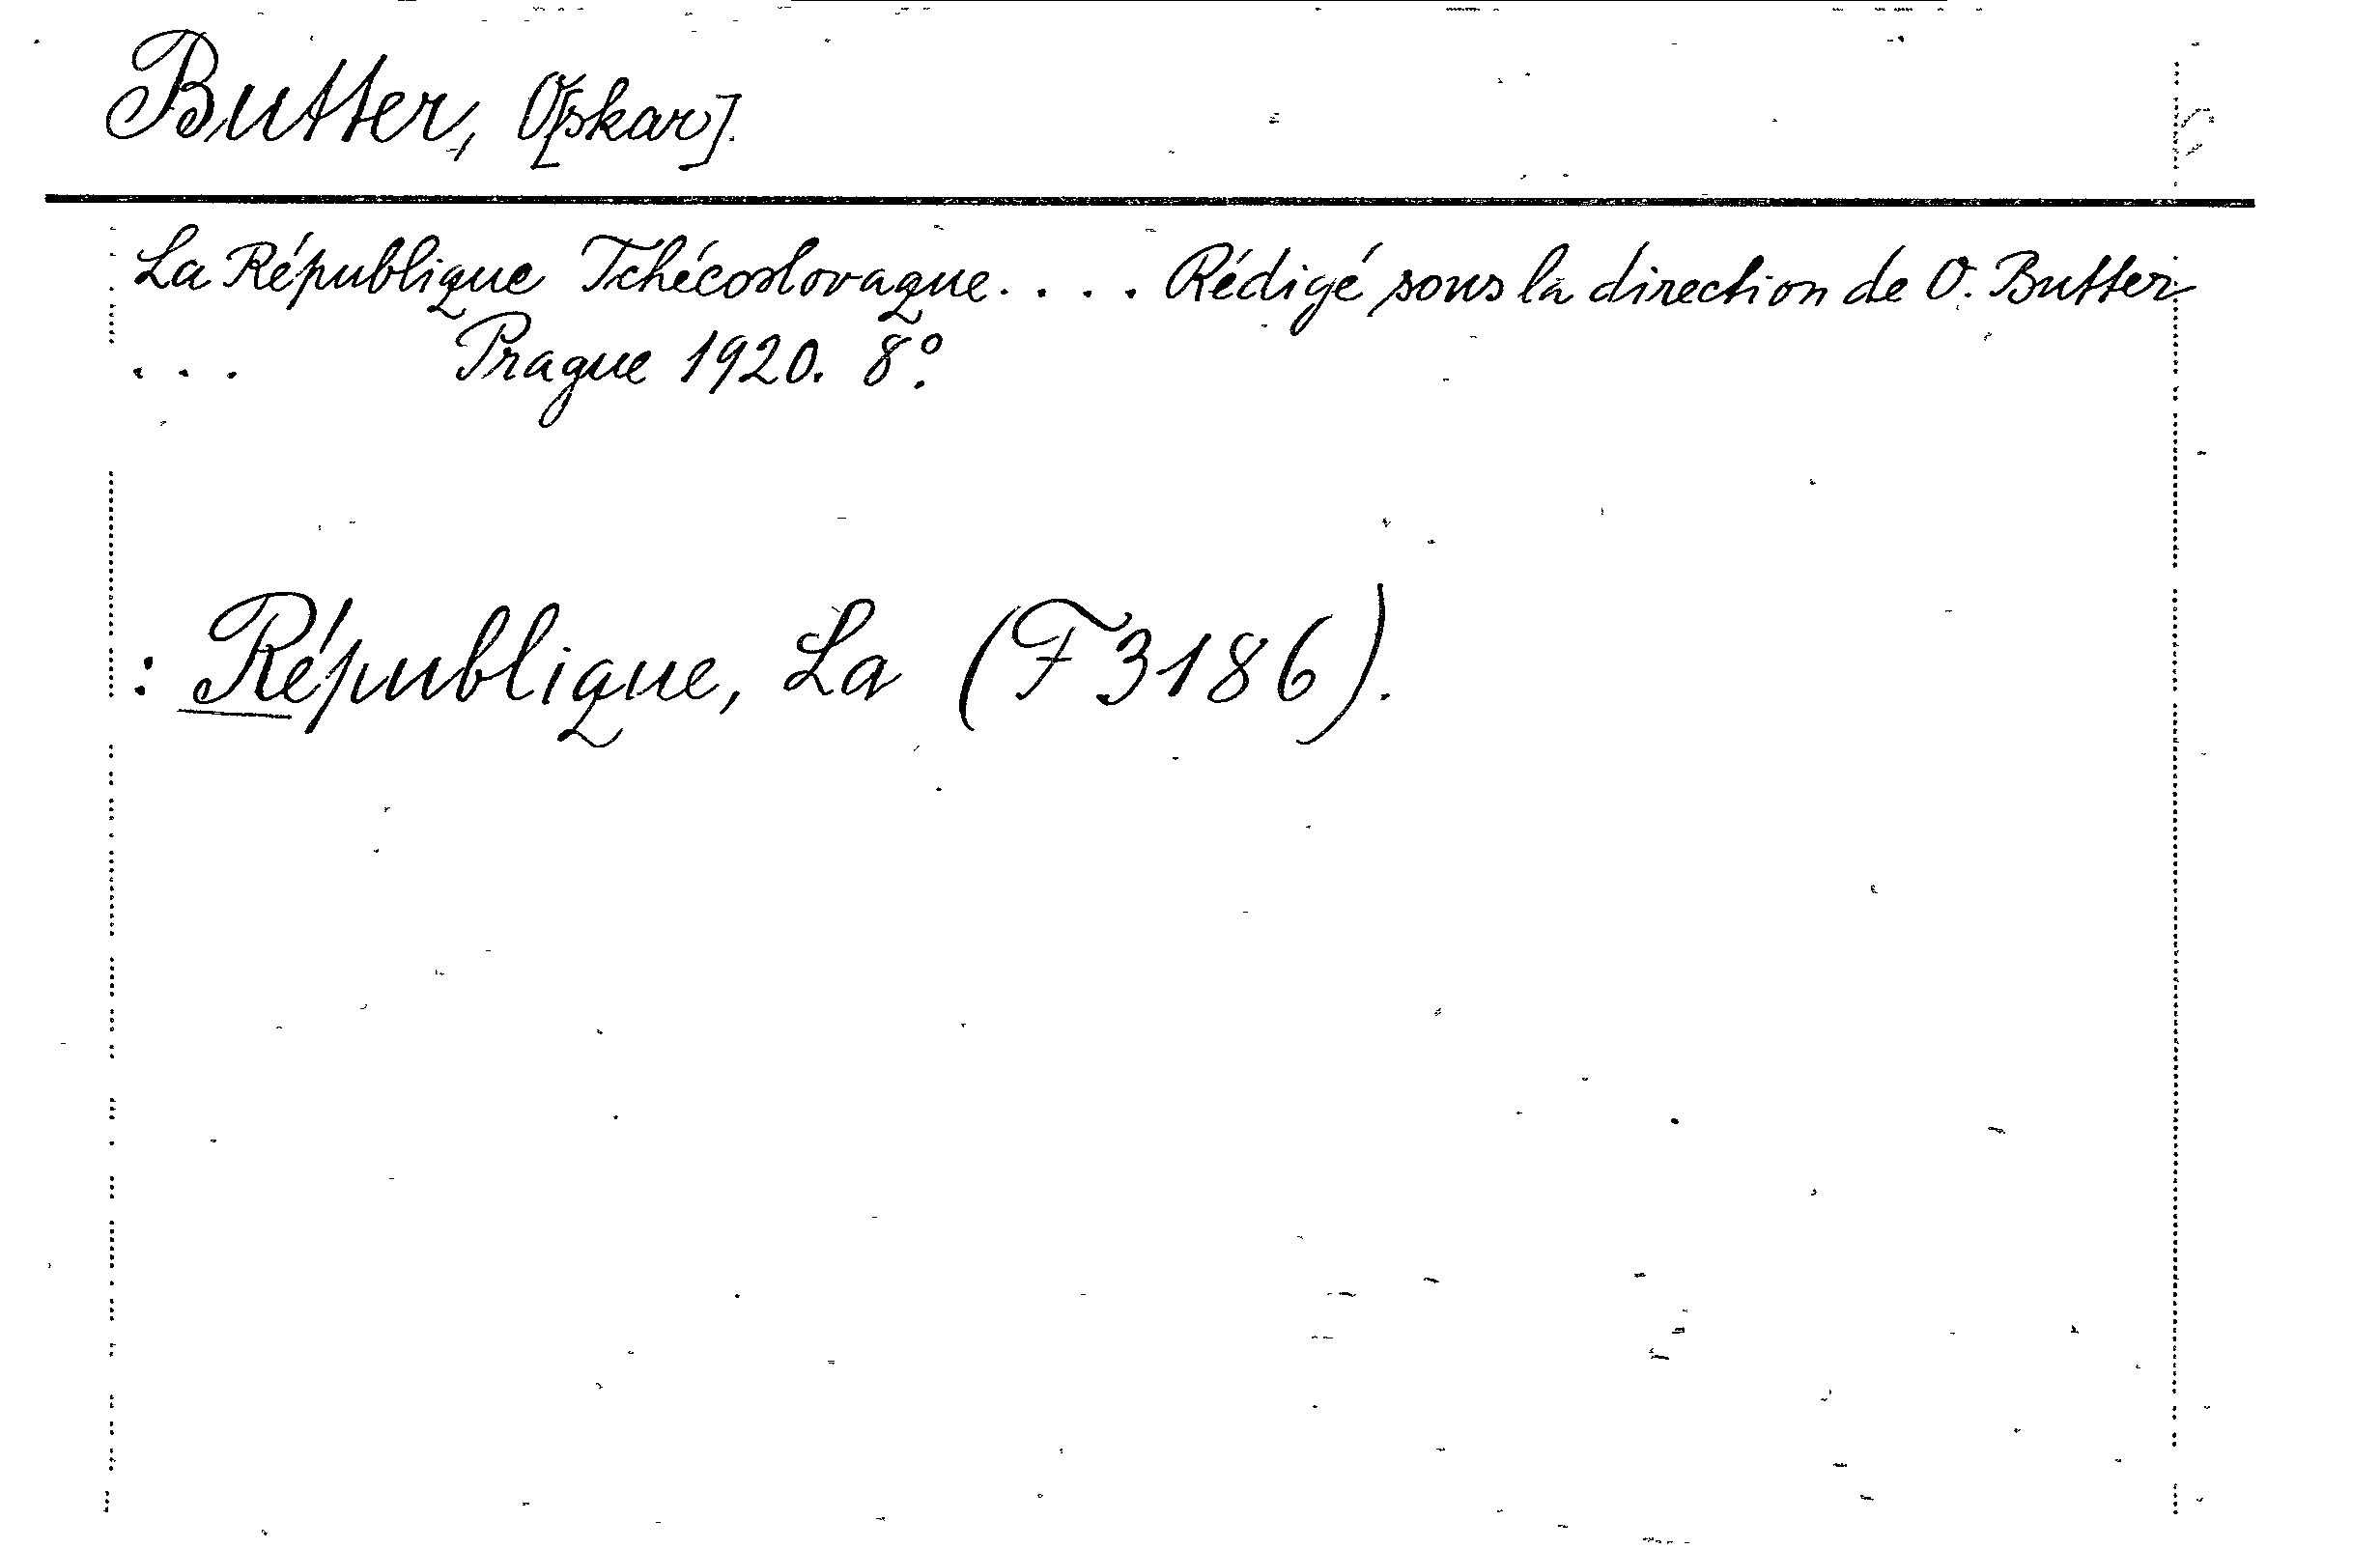 Butter, O[skar].
La République Tchécoslovaque. . . . Rédigé sous la direction de O. Butter
. . . Prague 1920. 8º.
: République, La (F 3186).